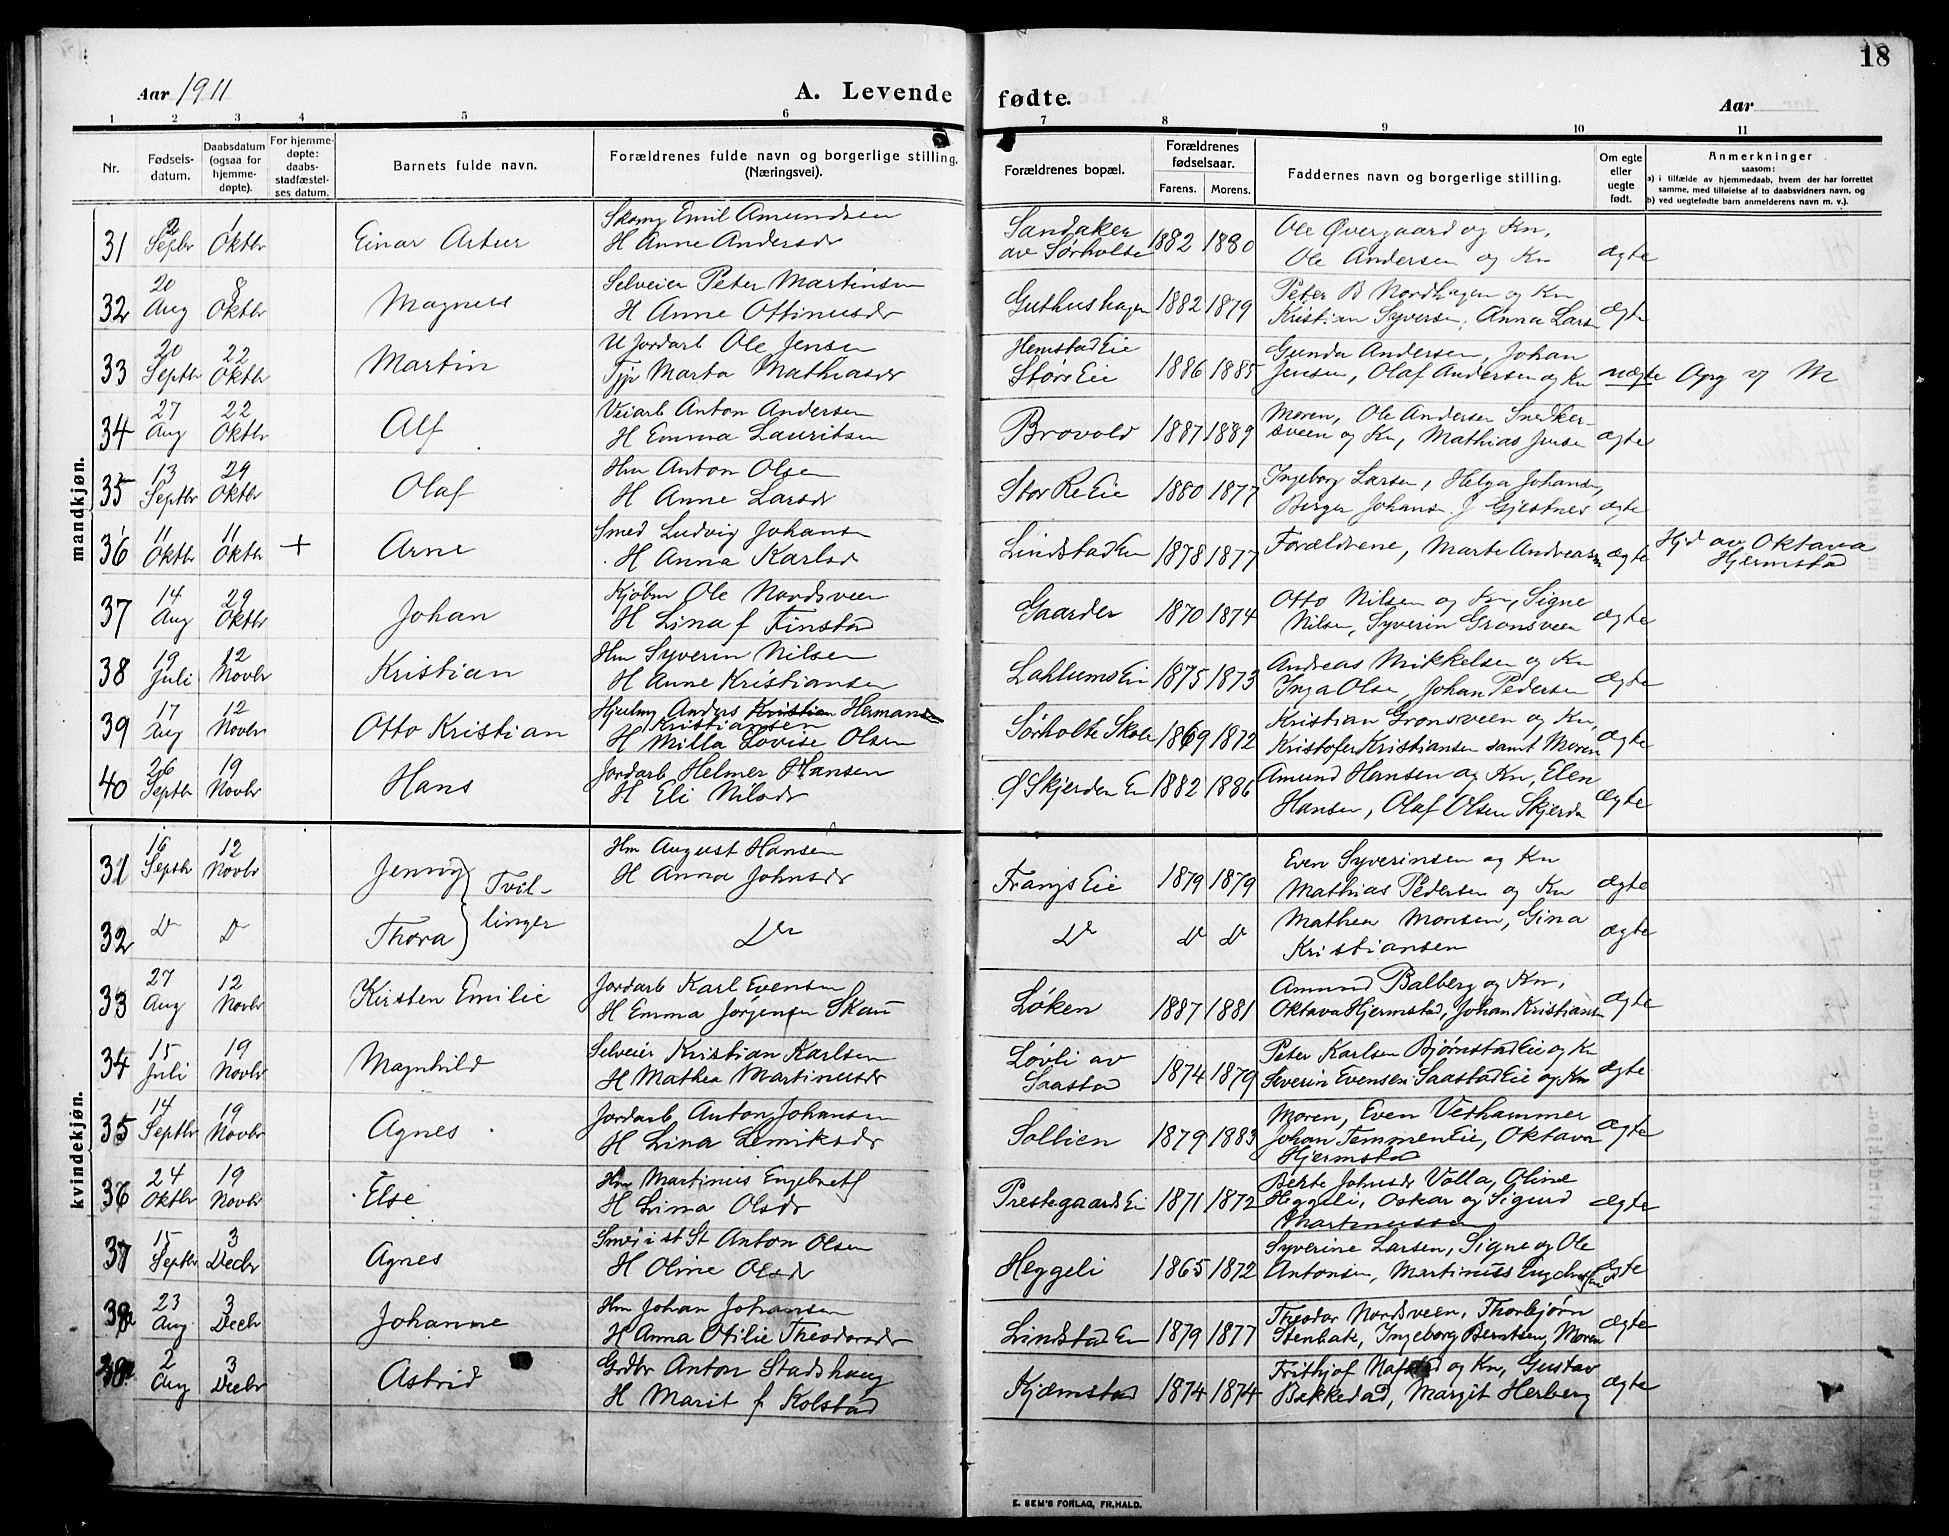 18
Aar 1911
A. Levende fødte.
Aar
1 2 3 4 5 6 7 8 9 10 11
Nr.
Fødsels-
datum.
Daabsdatum
(ogsaa for
hjemme-
døpte).
For hjemme-
døpte:
daabs-
stadfæstel-
ses datum.
Barnets fulde navn.
Forældrenes fulde navn og borgerlige stilling.
(Næringsvei).
Forældrenes bopæl.
Forældrenes
fødselsaar.
Farens. Morens.
Faddernes navn og borgerlige stilling.
Om egte
eller
uegte
født.
Anmerkninger
saasom:
a) i tilfælde av hjemmedaab, hvem der har forrettet
samme, med tilføielse af to daabsvidners navn, og
b) ved uegtefødte barn anmelderens navn m. v.).
mandkjøn.
31 2 Septbr 1 Oktbr Einar Artur
Emil Amundsen
H Anne Andersdr
Sandaker
av Sørholte
1882 1880
Ole Øvergaard og Kn,
Ole Andersen og Kn
ægte
32 20 Aug 8 Oktbr Magnus
Selveier Peter Martinsen
H Anne Ottinusdr
Guthushagen 1882 1879
Peter B Nordhagen og Kn
Kristian Syversen, Anna Larsen
ægte
33 20 Septbr 22 Oktbr Martin
U Jordarb Ole Jensen
Tjp Marta Mathiasdr
Hemstad Eie
Storr Eie
1886 1885
Gunda Andersen, Johan
Jensen, Olaf Andersen og Kn
uægte Opg v M
34 27 Aug 22 Oktbr Alf
Veiarb Anton Andersen
H Emma Lauritsen
Brovold 1887 1889
Moren, Ole Andersen Snedker-
sveen og Kn, Mathias Jensen
ægte
35 13 Septbr 29 Oktbr Olaf
Hm Anton Olsen
H Anne Larsdr
Stor Re Eie 1880 1877
Ingeborg Larsen, Helga Johansen,
Birger Johansen J Gjestnes
ægte
36 11 Oktbr 11 Oktbr + Arne
Smed Ludvig Johansen
H Anna Karlsdr
Lindstad Eie 1878 1877
Forældrene, Marte Andreasen
ægte
Hjd av Oktava
Hjermstad
37 14 Aug 29 Oktbr Johan
Kjøbm Ole Nordsveen
H Lina f Finstad
Gaarder 1870 1874
Otto Nilsen og Kn, Signe
Nilsen, Syverin Gronsveen
ægte
38 19 Juli 12 Novbr Kristian
Hm Syverin Nilsen
H Anne Kristiansen
Lahlums Eie 1875 1873
Andreas Mikkelsen og Kn
Inga Olsen, Johan Pedersen
ægte
39 17 Aug 12 Novbr Otto Kristian
Anders Kristian Hermansen
Kristiansen
H Milla Lovise Olsen
Sørholte Skole 1869 1872
Kristian Gronsveen og Kn,
Kristofer Kristiansen samt Moren
ægte
40 26 Septbr 19 Novbr Hans
Jordarb Helmer Hansen
H Eli Nilsdr
Ø Skjerden Eie 1882 1886
Amund Hansen og Kn, Elen
Hansen, Olaf Olsen Skjerden
ægte
kvindekjøn.
31 16 Septbr 12 Novbr Jenny } Tvil-
Hm August Hansen
H Anna Johnsdr
Frangs Eie 1879 1879
Even Syverinsen og Kn
Mathias Pedersen og Kn
ægte
32 Do Do Thora } linger
Do
Do Do Do
Mathea Monsen, Gina
Kristiansen
ægte
33 27 Aug 12 Novbr Kirsten Emilie
Jordarb Karl Evensen
H Emma Jørgensen Skau
Løken 1887 1881
Amund Balberg og Kn,
Oktava Hjermstad, Johan Kristiansen
ægte
34 15 Juli 19 Novbr Magnhild
Selveier Kristian Karlsen
H Mathea Martinusdr
Løvli av
Saastad
1874 1879
Peter Karlsen Bjørnstad Eie og Kn
Severin Evensen Saastad Eie og Kn
ægte
35 14 Septbr 19 Novbr Agnes
Jordarb Anton Johansen
H Lina Lemiksdr
Sollien 1879 1883
Moren, Even Vethammer
Johan Temmen Eie, Oktava
Hjermstad
ægte
36 24 Oktbr 19 Novbr Else
Hm Martinus Engebreth
H Lina Olsdr
Prestegaards Eie 1871 1872
Berte Johnsdr Volla, Oline
Heggeli, Oskar og Sigurd
Martinussen
ægte
37 15 Septbr 3 Decbr Agnes
Anton Olsen
H Oline Olsdr
Heggeli 1865 1872
Syverine Larsen, Signe og Ole
Antonsen, Martinus Engebretsen
ægte
38 23 Aug 3 Decbr Johanne
Hm Johan Johansen
H Anna Otilie Theodorsdr
Lindstad Eie 1879 1877
Theodor Nordsveen, Thorbjørn
Stenbak, Ingeborg Berntsen, Moren
ægte
38 2 Aug 3 Decbr Astrid
Grdbr Anton Stadshaug
H Marit f Kolstad
Kjæmstad 1874 1874
Frithjof Nafstad og Kn, Gustav
Bakkedad, Margit Herberg
ægte
E. SEM'S FORLAG, FR.HALD.